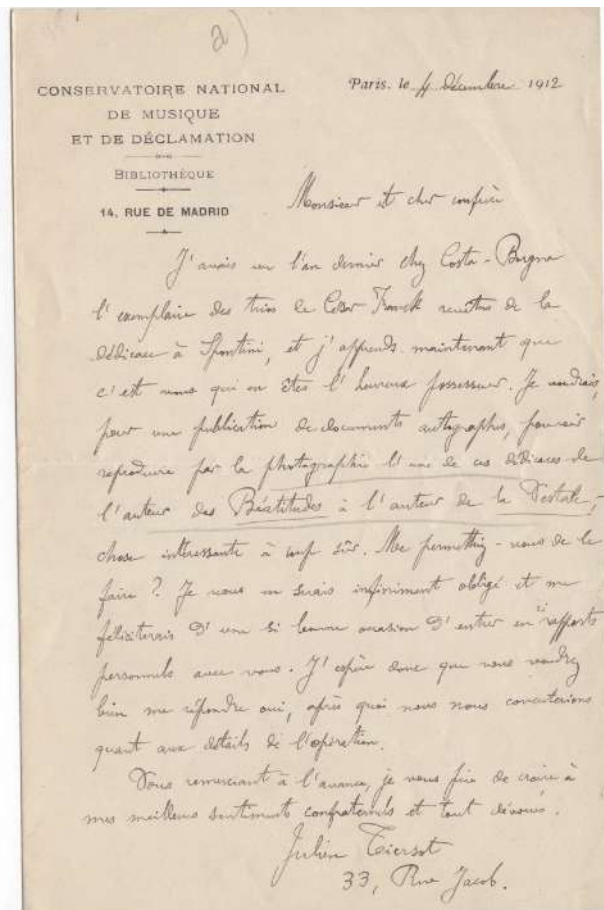 a)
CONSERVATOIRE NATIONAL
DE MUSIQUE
ET DE DÉCLAMATION
BIBLIOTHÈQUE
14, RUE DE MADRID
Paris, le 4 décembre 1912
Monsieur et cher confrère
J'avais vu l'an dernier chez Costa-
l'exemplaire des trios de César Franck revêtus de la
dédicace à Spontini, et j'apprends maintenant que
c'est vous qui en êtes l'heureux possesseur. Je voudrais,
pour une publication de documents autographes, pouvoir
reproduire par la photographie l'une de ces dédicaces de
l'auteur des Béatitudes à l'auteur de la Vestale, -
chose intéressante à coup sûr. Me permettez-vous de le
faire ? Je vous en serais infiniment obligé et me
féliciterais d'une si bonne occasion d'entrer en rapports
personnels avec vous. J'espère donc que vous voudrez
bien me répondre oui, après quoi nous nous concerterions
quant aux détails de l'opération.
Vous remerciant à l'avance, je vous prie de croire à
mes meilleurs sentiments confraternels et tout dévoués.
Julien Tiersot
33, Rue Jacob.